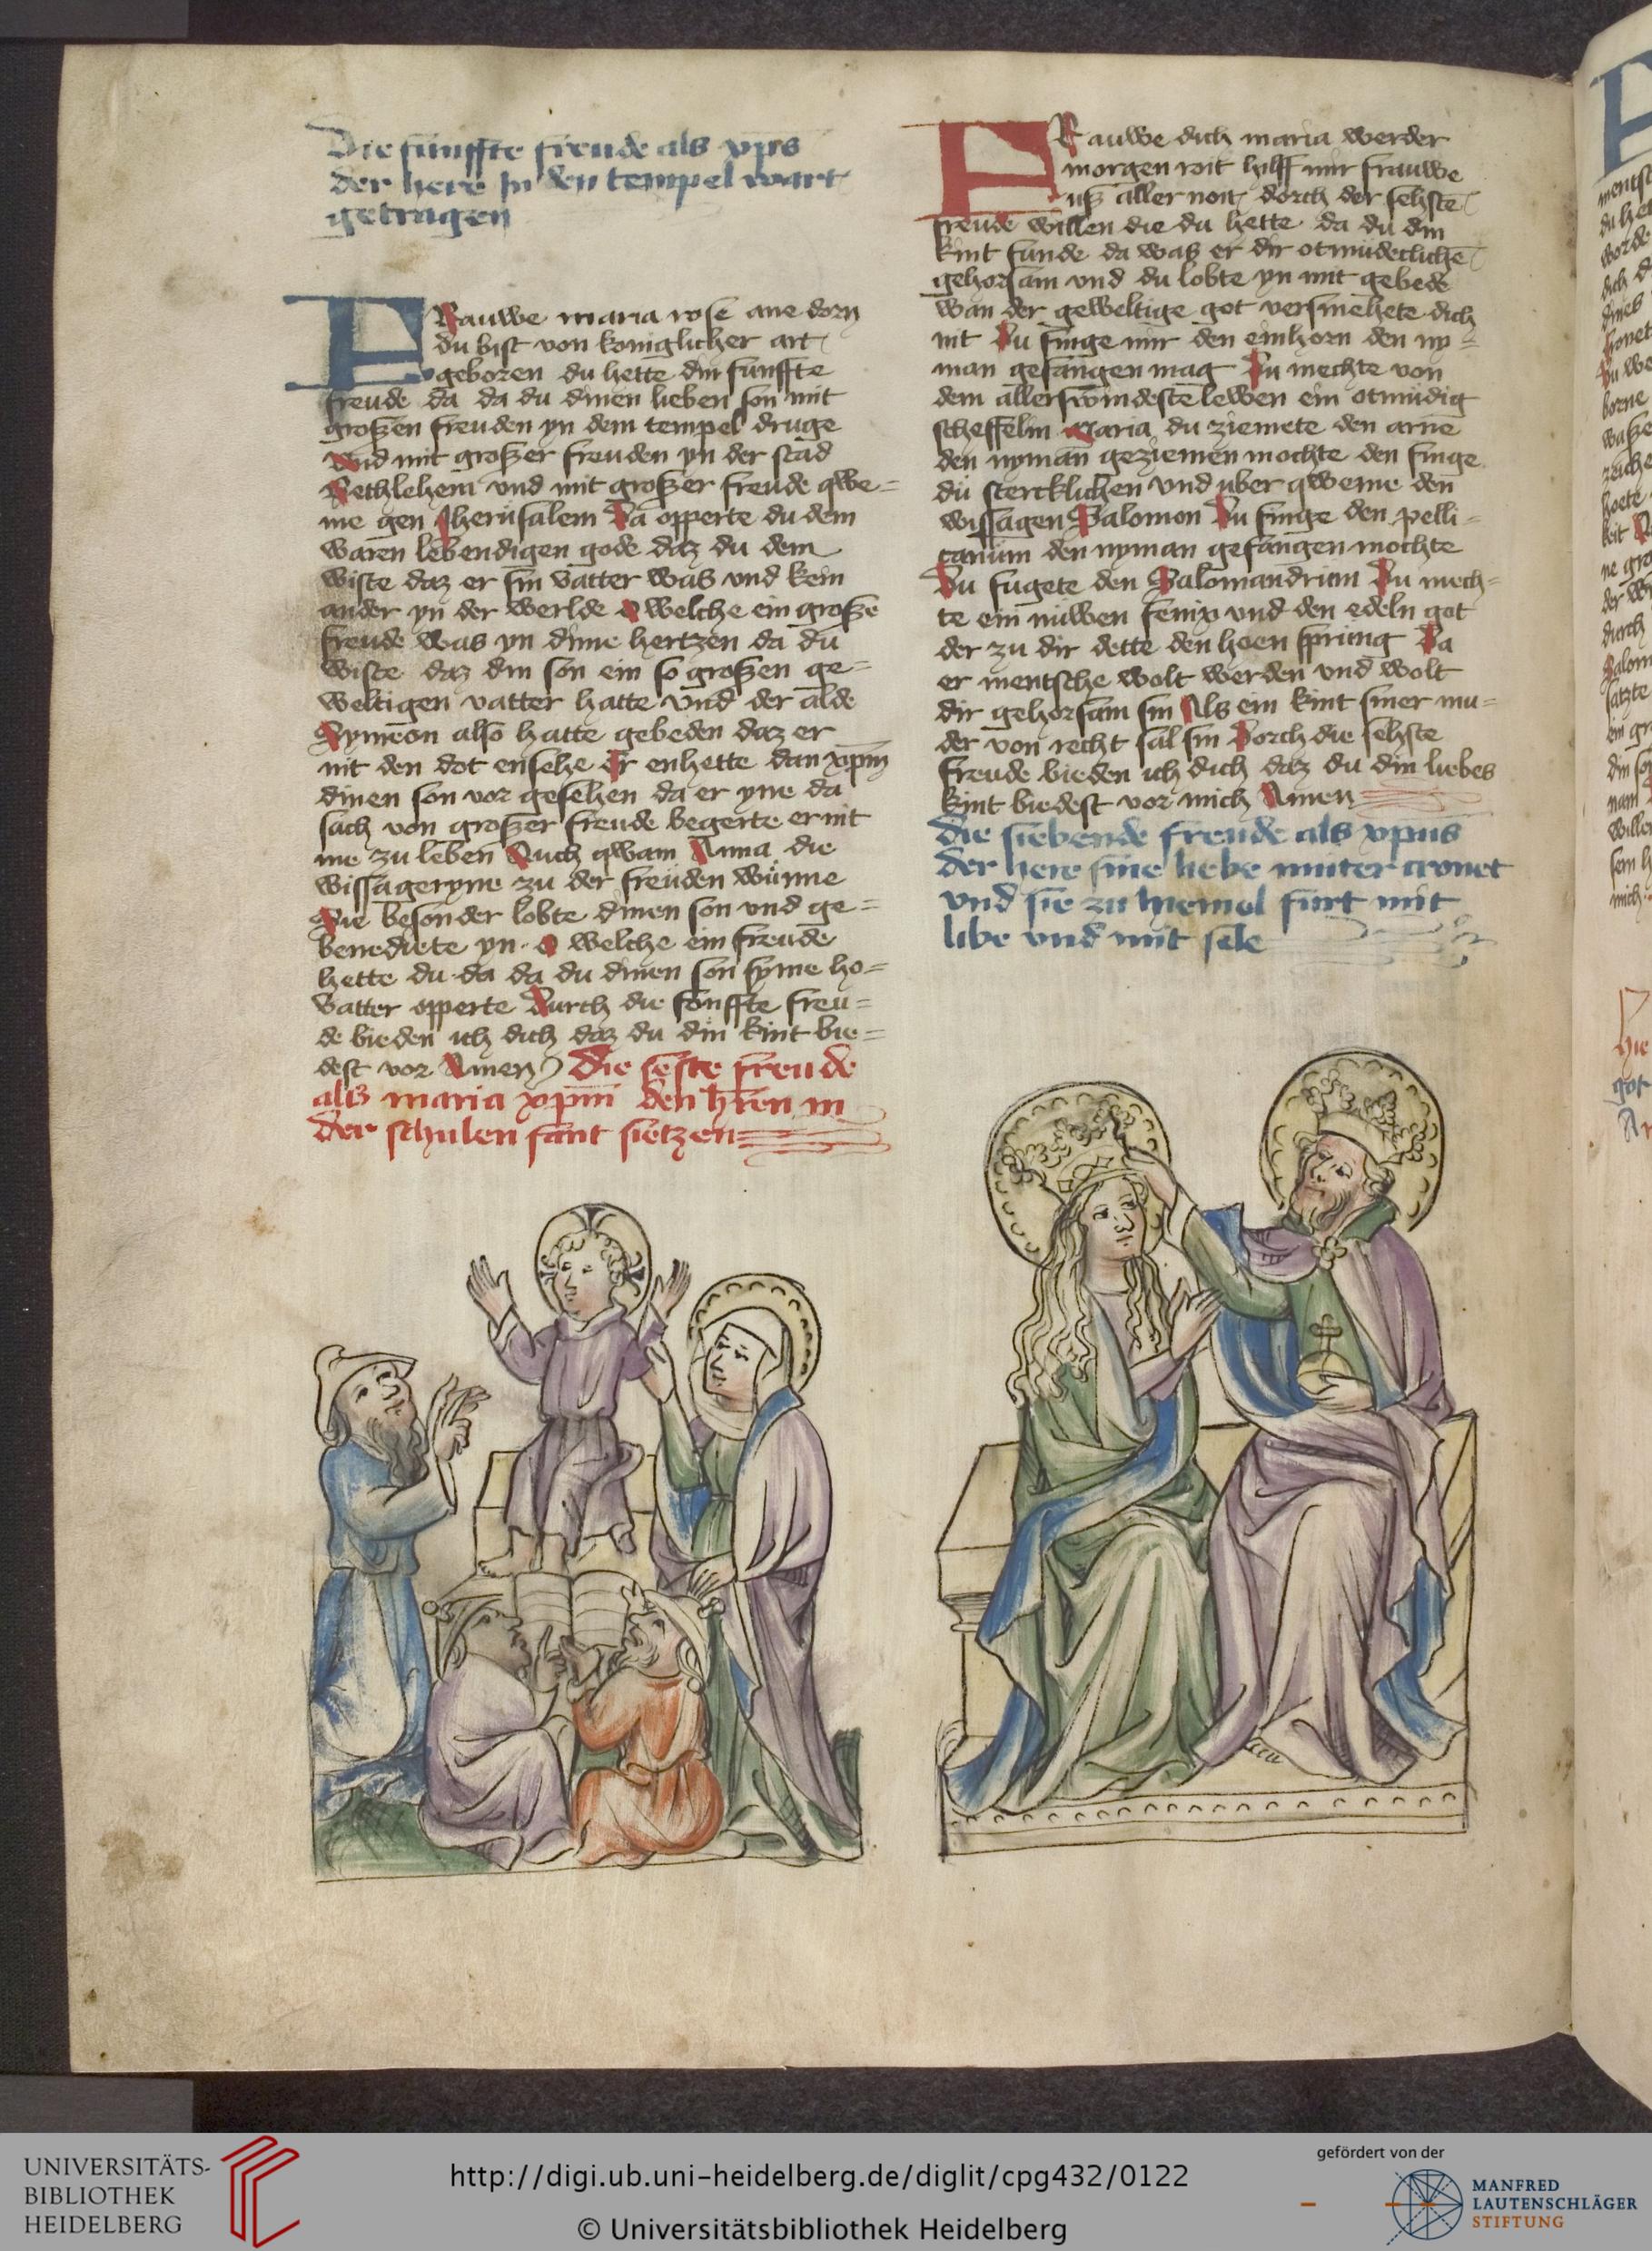 Die funffte freude als xp̄s
der here in den tempel wart
getragen
FRauwe maria rose ane dorn
du bist von koniglicher art
geboren du hette din funffte
freude da da du dinen lieben son mit
großen freuden yn dem tempel druge
und mit großer freuden yn der stad
Bethlehem und mit großer freude qwe=
me gen Jherusalem Da opperte du dem
waren lebendigen gode daz du dem
wiste daz er sin vatter was und kein
ander yn der werlde O welche ein große
freude was yn dime hertzen da du
wiste daz din son ein so großen ge=
weltigen vatter hatte und der alde
Symeon also hatte gebeden daz er
nit den dot ensehe Er enhette dan xp̄m
dinen son vor gesehen da er yne da
sach von großer freude begerte er nit
me zu leben Auch qwam Anna die
wissageryne zu der freuden wunne
Die besonder lobte dinen son und ge=
benediete yn O welche ein freude
hette du da da du dinen son syme ho=
vatter opperte Durch die fonffte freu=
de bieden ich dich daz du din kint bie=
dest vor Amen Die seste freude
als maria xp̄m den h̄ren in
der schulen fant sietzen
FRauwe dich maria werder
morgen roit hilff mir frauwe
uß aller noit dorch der sehstē
freude willen die du hette da du din
kint funde da was er dir otmudeclichē
gehorsam und du lobte yn mit gebede
wan der geweltige got versmehete dich
nit Du finge mir den einhorn den ny=
man gefangen mag Du mechte von
dem allerswindesten lewen ein otmudig
scheffelin Maria du ziemete den arnē
den nyman geziemen mochte den finge
du stercklichen und uber qweme den
wissagen Salomon Du finge den pelli=
canum den nyman gefangen mochte
Du fugete den Salomandrum Du mech=
te ein nuwen fenix und den edeln got
der zu dir dette den hoen sprung Da
er mentsche wolt werden und wolt
dir gehorsam sin Als ein kint siner mu=
der von recht sal sin Dorch die sehste
freude bieden ich dich daz du din liebes
kint biedest vor mich Amen
die siebende freude als xp̄us
der here sine liebe muter cronet
und sie zu hiemel furt mit
libe und mit sele
UNIVERSITÄTS-
BIBLIOTHEK
HEIDELBERG
http://digi.ub.uni-heidelberg.de/diglit/cpg432/0122
© Universitätsbibliothek Heidelberg
gefördert von der
MANFRED
LAUTENSCHLÄGER
STIFTUNG